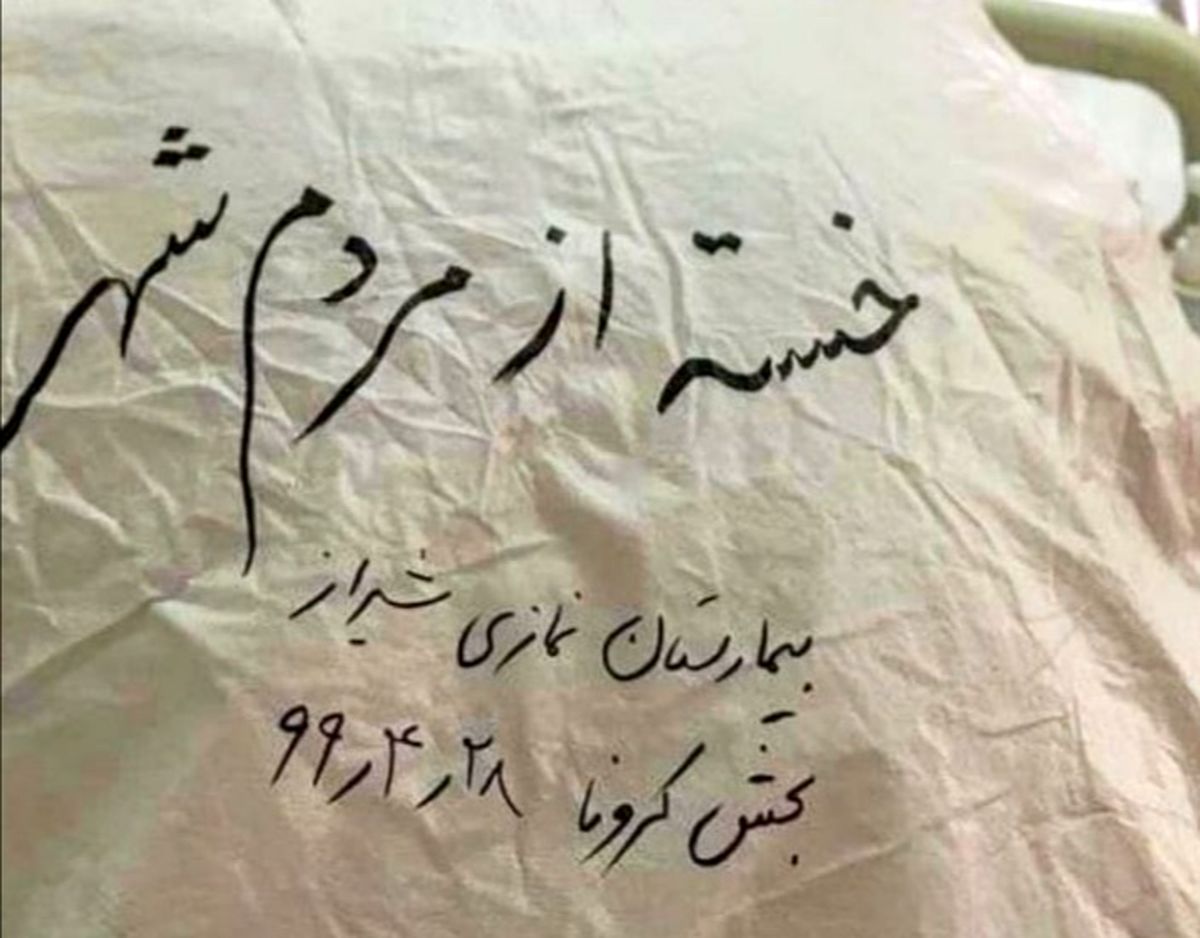 خسته از مردم شهر
بیمارستان نمازی شیراز
بخش کرونا ۲۸ر۴ر۹۹